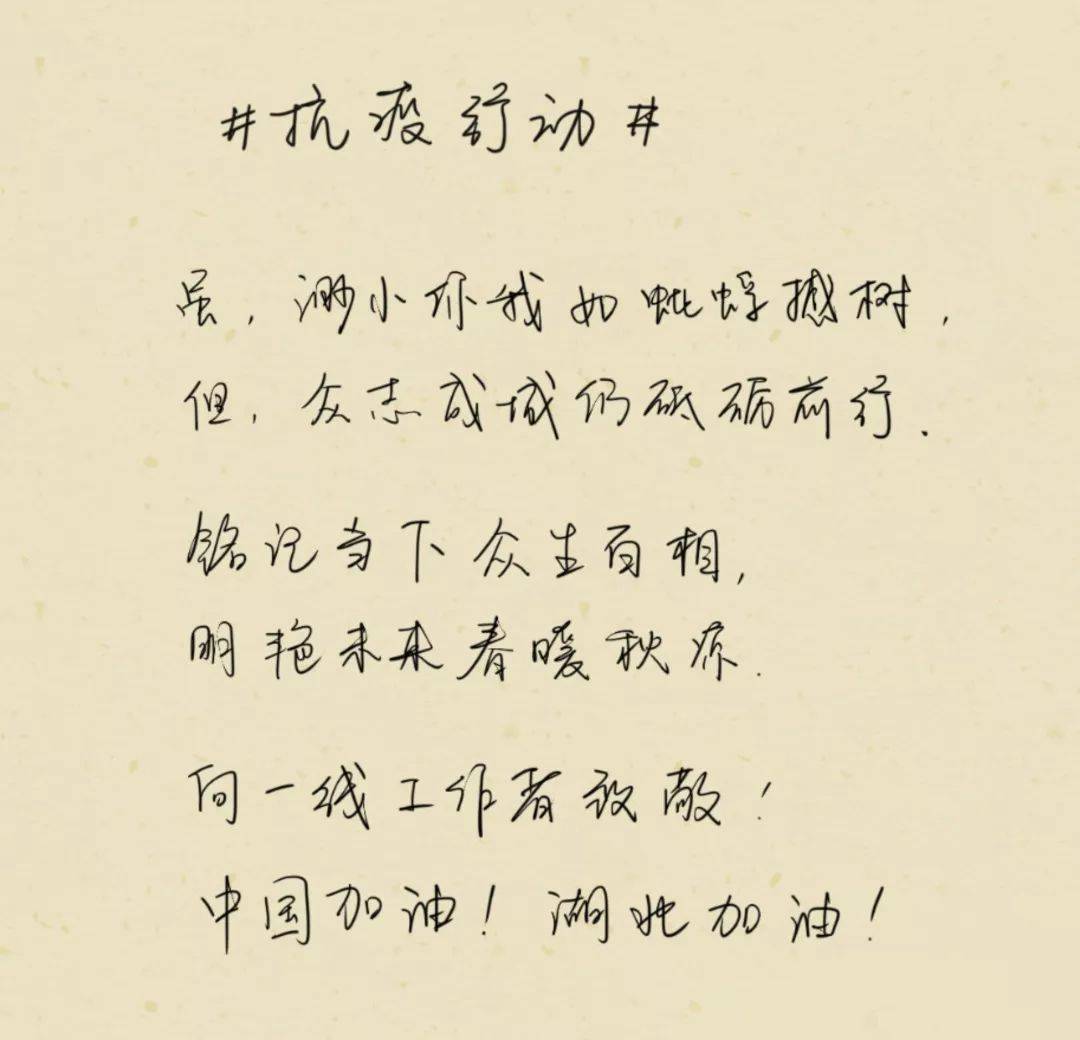 #抗疫行动#
虽,渺小你我如蚍蜉撼树,
但,众志成城仍砥砺前行.
铭记当下众生百相,
明艳未来春暖秋凉.
向一线工作者致敬!
中国加油!湖北加油!